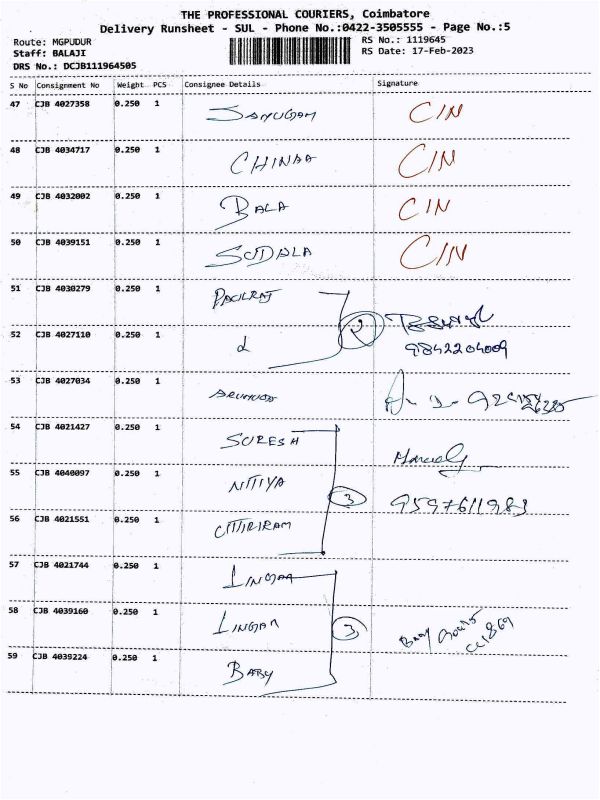 THE PROFESSIONAL COURIERS, Coimbatore
Delivery Runsheet - SUL - Phone No.:0422-3505555 - Page No.:5
Route: MGPUDUR
Staff: BALAJI
DRS No.: DCJB111964505
RS No.: 1119645
RS Date: 17-Feb-2023
S No Consignment No Weight PCS Consignee Details Signature
47 CJB 4027358 0.250 1 CIN
48 CJB 4034717 0.250 1 CHINAA CIN
49 CJB 4032002 0.250 1 BALA CIN
50 CJB 4039151 0.250 1 SUDALA CIN
51 CJB 4030279 0.250 1
2
52 CJB 4027110 0.250 1 9842204009
53 CJB 4027034 0.250 1
54 CJB 4021427 0.250 1 SURESH
55 CJB 4040097 0.250 1 NITIYA 3 9597611983
56 CJB 4021551 0.250 1
57 CJB 4021744 0.250 1 LINGAA
58 CJB 4039160 0.250 1 LINGAM 3
59 CJB 4039224 0.250 1 BABY